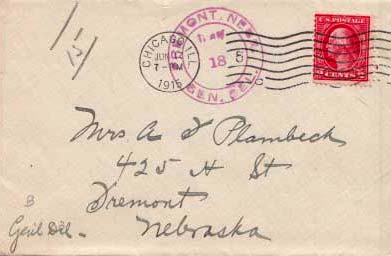 15
CHICAGO, ILL.
JUN
7-PM
1915
FREMONT, NEBR.
18
5
GEN. DEL.
U.S. POSTAGE
2 CENTS 2
Mrs A J Plambeck
425 H St
Fremont
Nebraska
B
Genl Del -